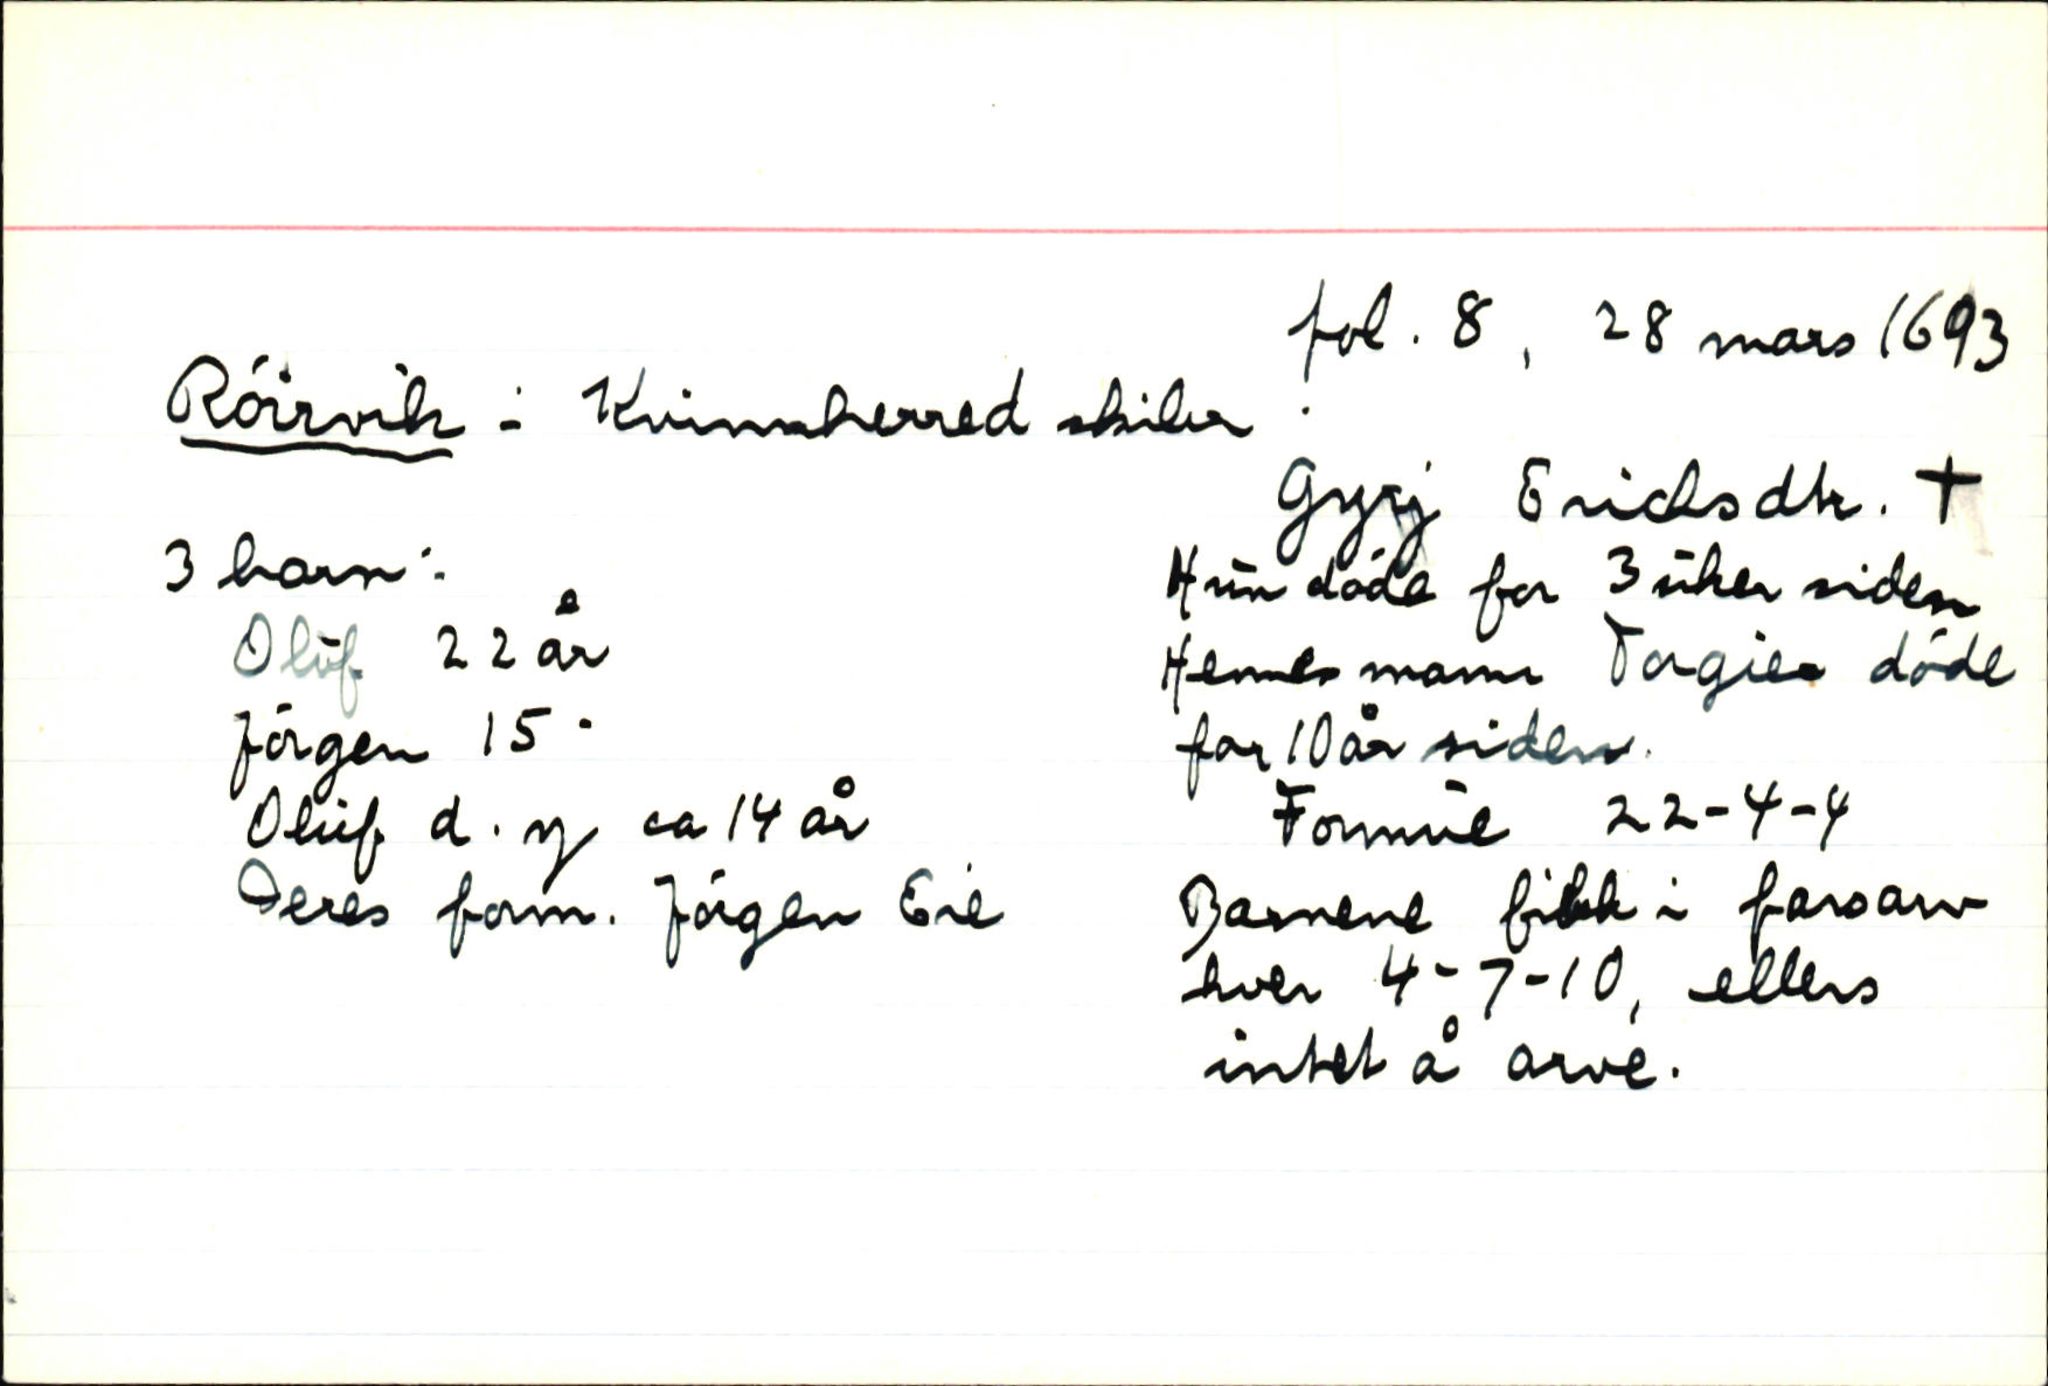 fol. 8, 28 mars 1693
Röirvik i Kvinnherred skibr :
Gyrj Erichsdtr. †
3 barn:
Oluf 22 år
Jörgen 15 "
Oluf d. y ca 14 år
Deres form. Jörgen Eie
Hun døde for 3 uker siden
Hennes mann Torgies døde
for 10 år siden.
Formue 22-4-4
Barnene fikk i farsarv
hver 4-7-10, ellers
intet å arve.